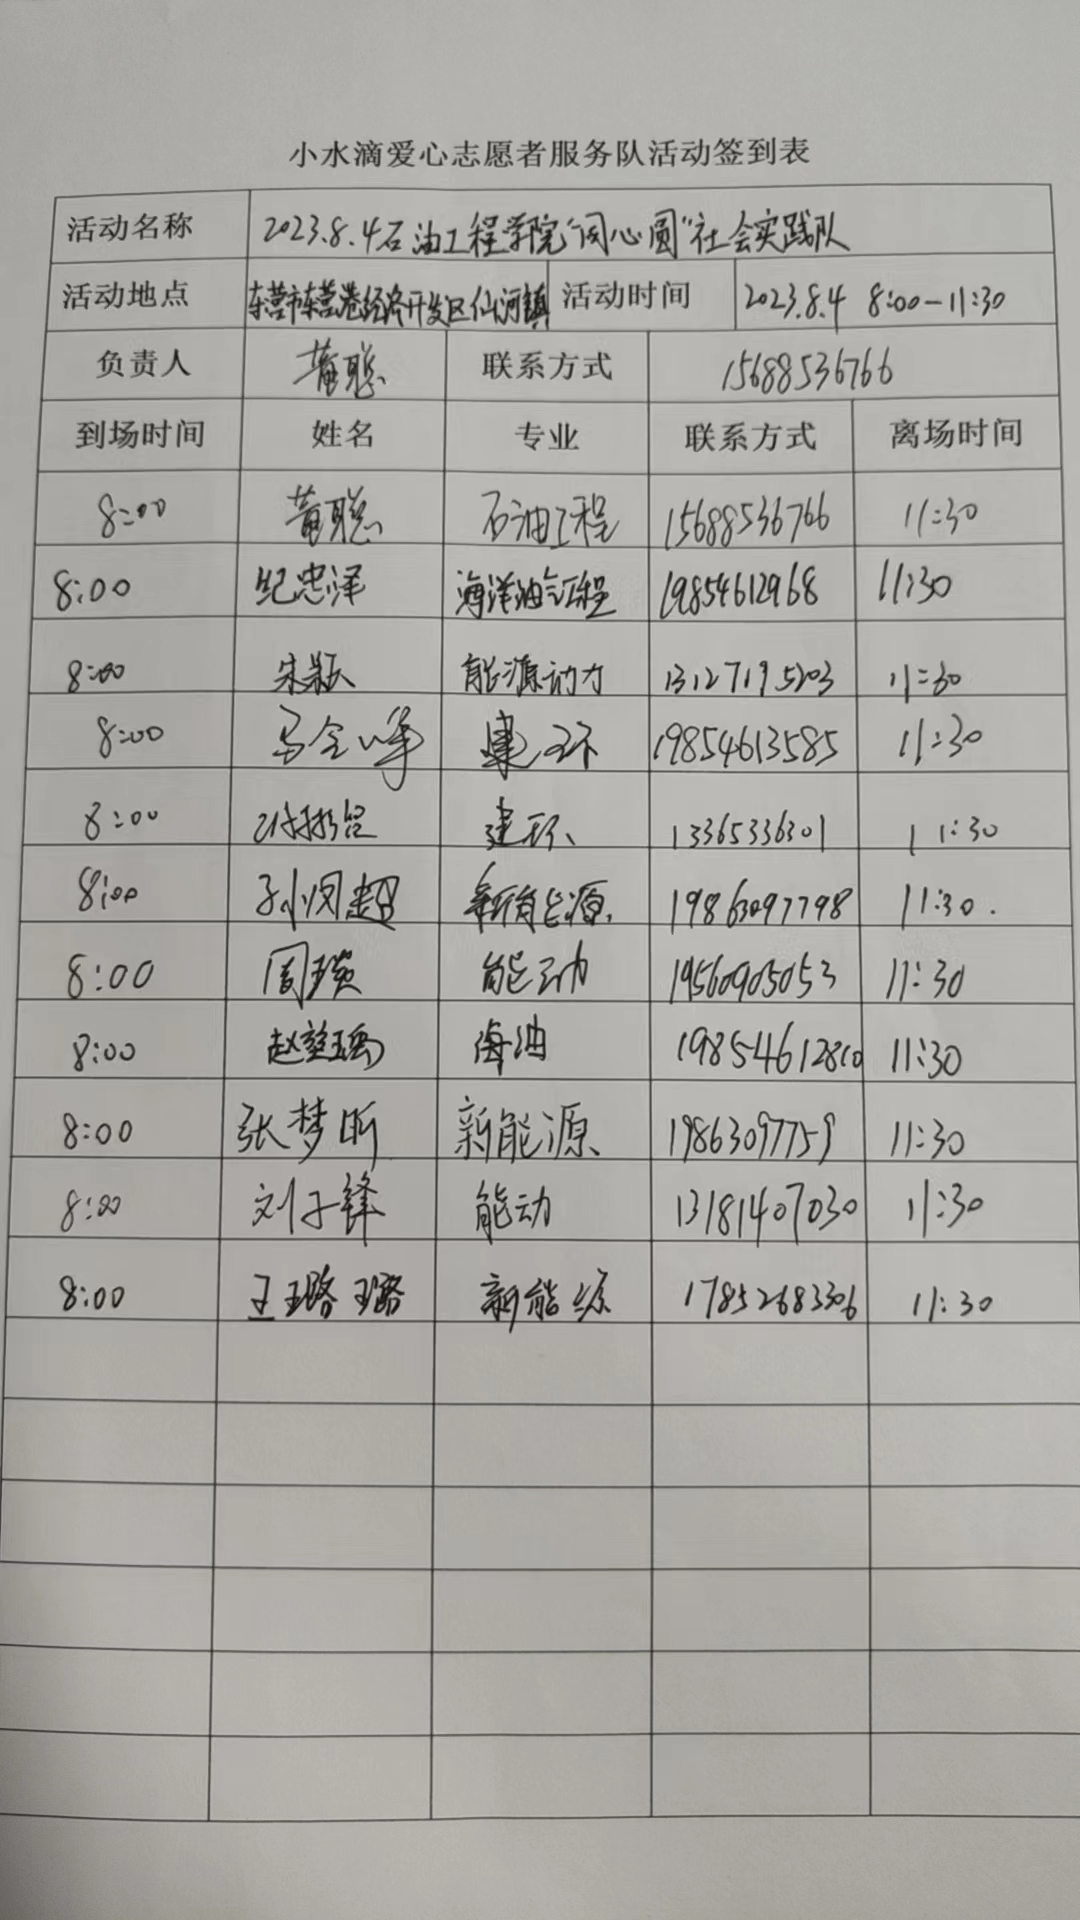 小水滴爱心志愿者服务队活动签到表
活动名称 2023.8.4石油工程学院“同心圆”社会实践队
活动地点 东营市东营港经济开发区仙河镇 活动时间 2023.8.4 8:00-11:30
负责人 黄聪 联系方式 15688536766
到场时间 姓名 专业 联系方式 离场时间
8:00 黄聪 石油工程 15688536766 11:30
8:00 纪忠泽 海洋油气工程 19854612968 11:30
8:00 朱颢 能源动力 13127195203 11:30
8:00 马全峰 建环 19854613585 11:30
8:00 建环 13365336301 11:30
8:00 孙凤超 新能源 19863097798 11:30.
8:00 周瑛 能动 19560905053 11:30
8:00 赵堃瑀 海油 19854612810 11:30
8:00 张梦昕 新能源 19863097759 11:30
8:00 刘子锋 能动 13181407030 11:30
8:00 王璐璐 新能源 17852683306 11:30